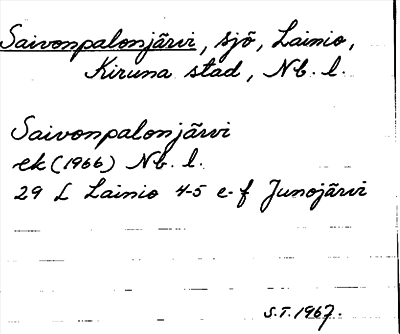 Saivonpalonjärvi, sjö, Lainio,
Kiruna stad, Nb. l.
Saivonpalonjärvi
ek (1966) Nb. l.
29 L Lainio 4-5 e-f Junojärvi
S.T. 1967.